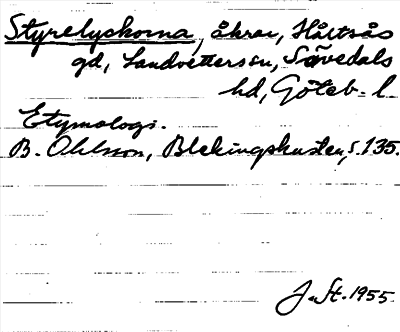 Styrelyckorna, åkrar, Hårtsås
gd, Landvetter sn, Sävedals
hd, Göteb. l.
Etymologi.
B. Ohlsson, Blekingskusten, s. 135.
J. St. 1955